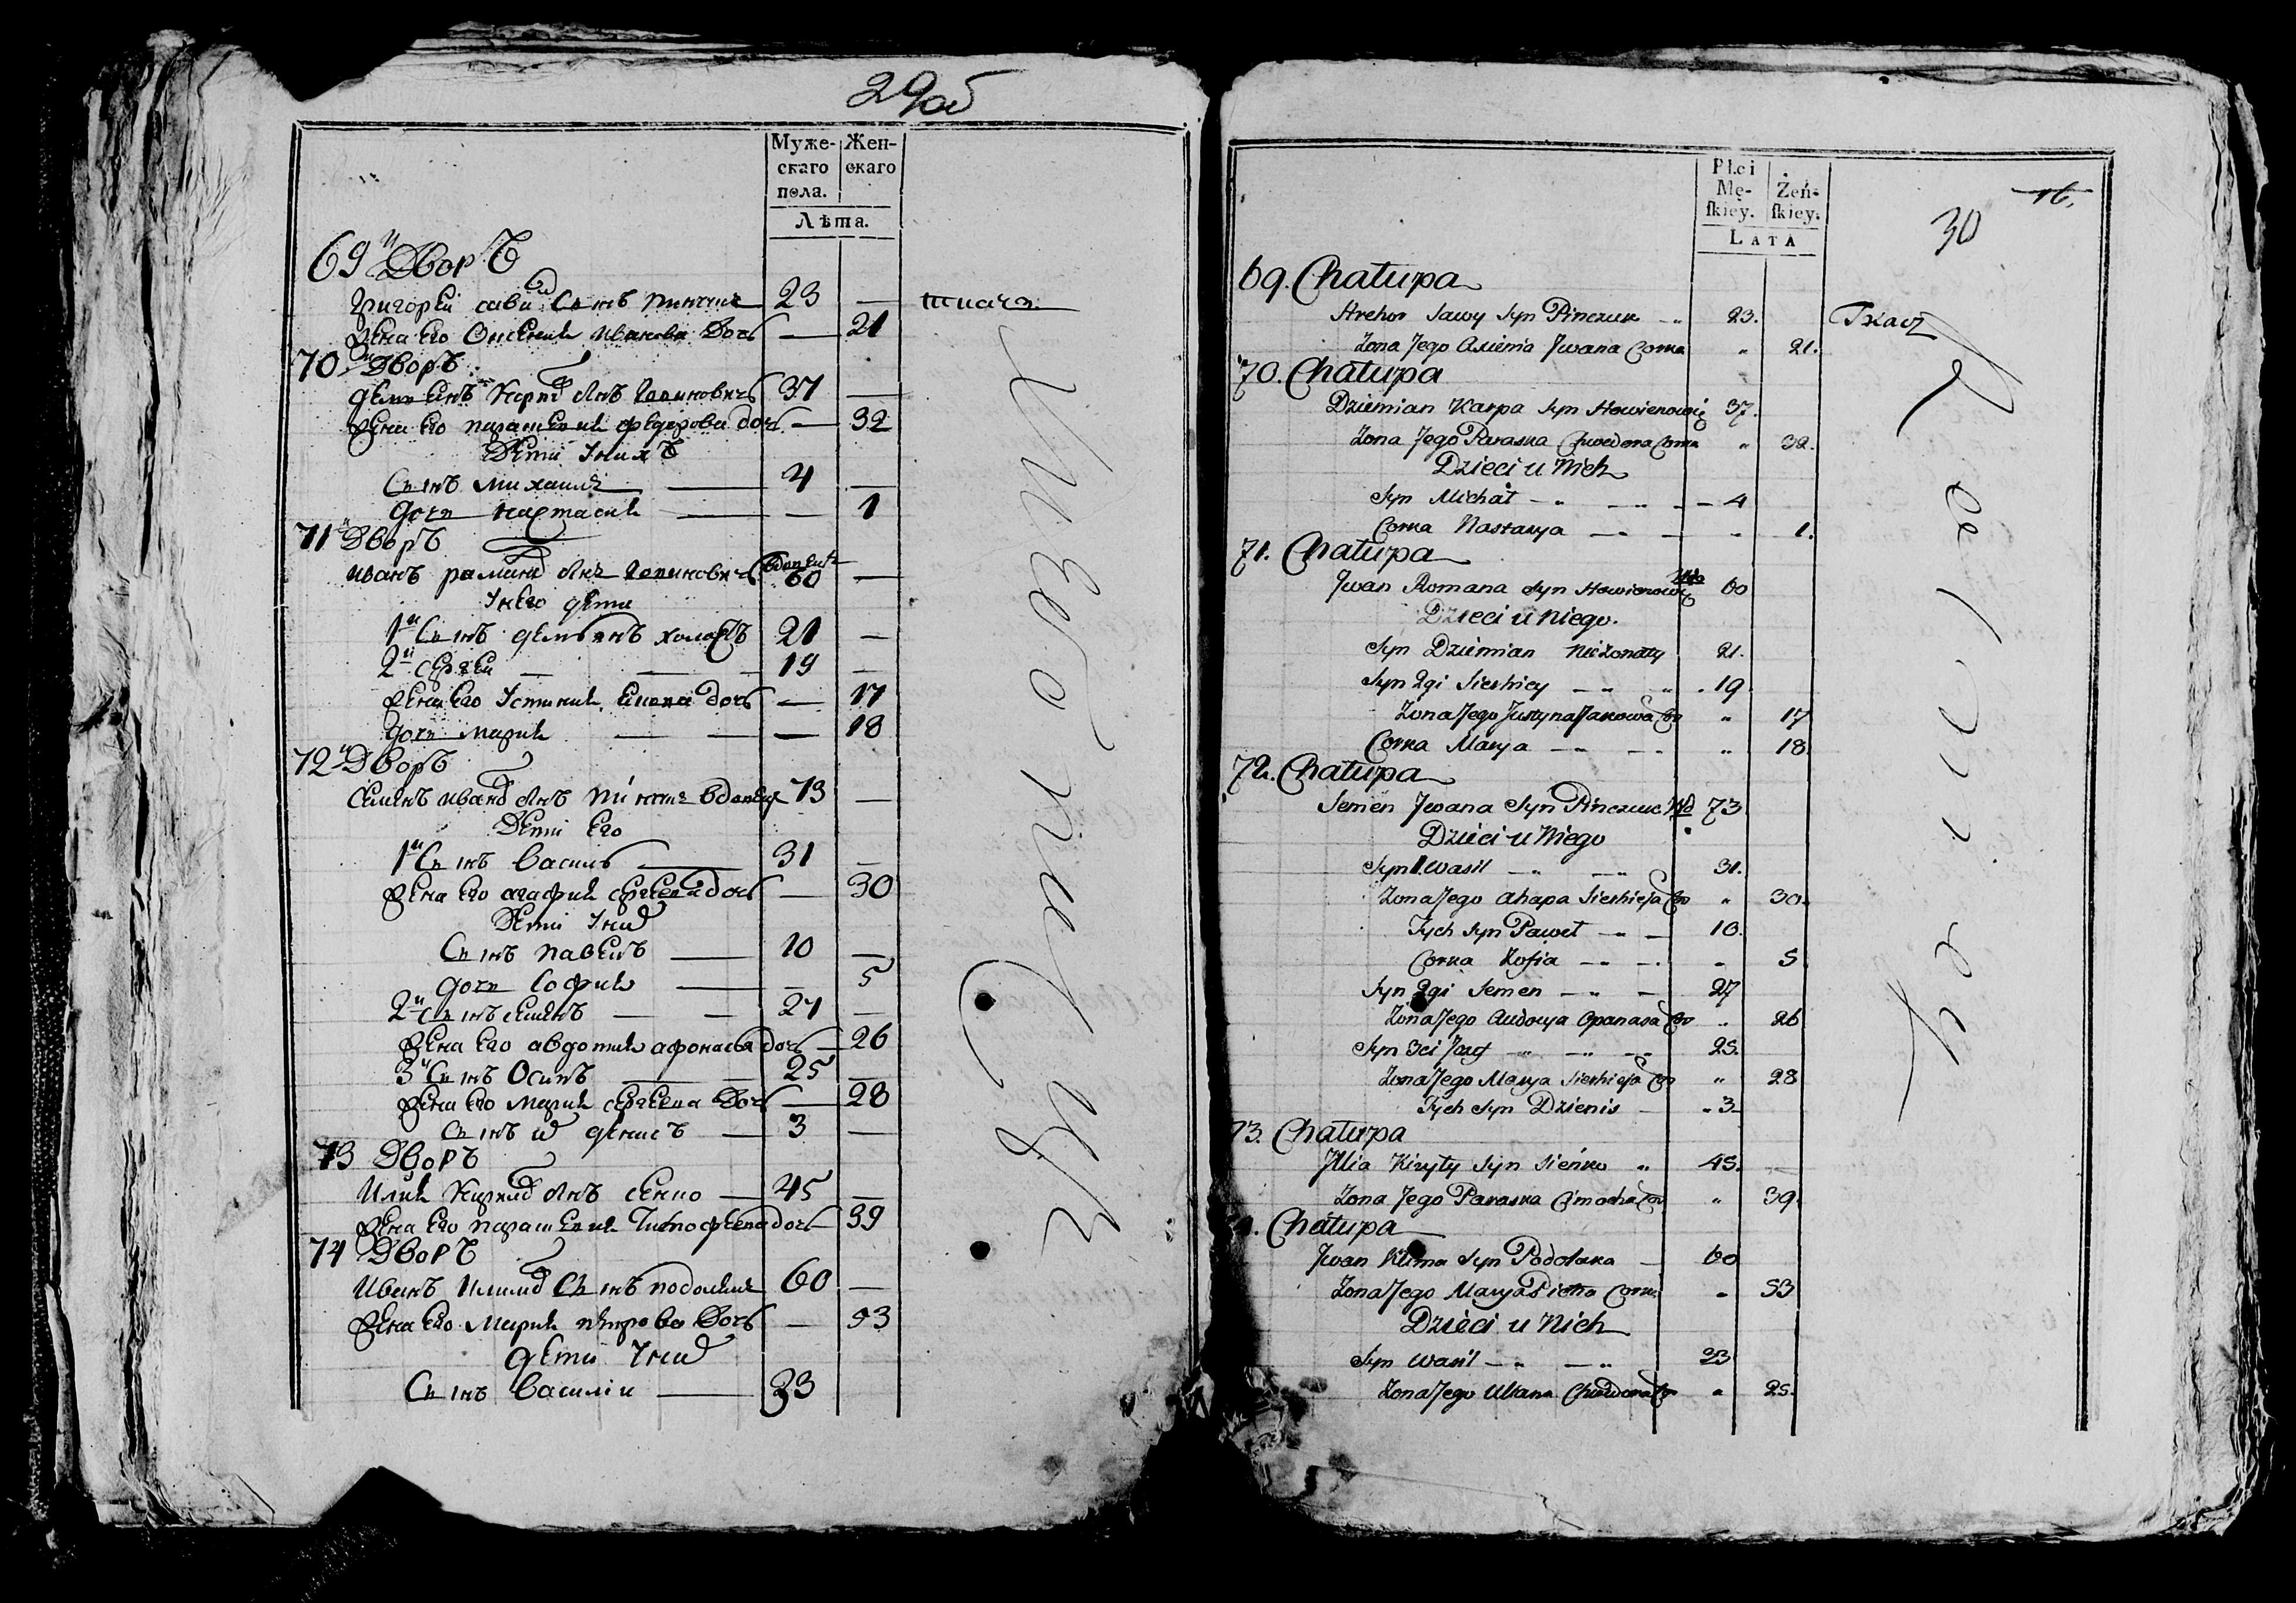 29об
Муже-
скаго
пола.
Жен-
скаго
Лѣта.
69й Дворъ
Григорей сави Сынъ пинчукъ 23 — ткачъ
жена его Оксения иванова Дочь — 21
70й Дворъ
демьянъ карпа сынъ 37 —
жена его парасковия федорова дочь — 32
Дети у нихъ
Сынъ михаилъ — 4 —
дочь настасия — — 1
71й Дворъ
иванъ романа сынъ вдовецъ 60 —
у него дети
1й Сынъ демьянъ холостъ 21 —
2й сергеи — 19 —
жена его Устиния дочь — 17
дочь мария — — 18
72й Дворъ
семенъ ивана сынъ пинчукъ вдовецъ 73 —
Дети его
1й Сынъ василь — 31 —
жена его агафия сергеева дочь — 30
Дети у них
Сынъ павелъ — 10 —
дочь софия — — 5
2й сынъ семенъ — 27 —
жена его авдотия афонасья дочь — 26
3й Сынъ Осипъ — 25 —
жена его мария сергеева Дочь — 28
Сынъ денисъ — 3 —
73 Дворъ
Илия сынъ сенко — 45 —
жена его парасковия тимофеева дочь — 39
74 Дворъ
иванъ клима Сынъ подоляка 60 —
жена его Мария петрова Дочь — 53
дети у них
Сынъ василии — 33
Płci
Mę-
ſkiey.
Żeń-
ſkiey.
LATA
16.
30
69. Chałupa
Hrehor Sawy Syn Pinczuk 23. Tkacz
Zona Jego Axienia Jwana Corka " 21.
70. Chałupa
Dziemian Karpa Syn Howienowicz 37.
Zona Jego Paraska Chwedora Corka " 32.
Dzieci u Nich
Syn Michał — 4
Corka Nastazya — " 1.
71. Chałupa
Jwan Romana Syn Howienowicz Wdo 60
Dzieci u niego.
Syn Dziemian Nieżonaty 21.
Syn 2gi Sierhiey — 19
Zona Jego Justyna Jakowa Co " 17
Corka Marya — " 18.
72. Chałupa
Semen Jwana Syn Pinczuk Wd 73
Dzieci u Niego
Syn 1. Wasil — 31.
Zona Jego Ahapa Sierhieja Co " 30.
Tych Syn Paweł — 10.
Corka Zofia — " 5
Syn 2gi Semen — 27
Zona Jego Audocya Opanasa Co " 26
Syn 3ci Jozef — 25.
Zona Jego Marya Sierhieja Co " 28
Tych Syn Dzienis — 3
73. Chałupa
Jllia Kiryły Syn Sieńko " 45.
Zona Jego Paraska Cimocha Cor " 39.
. Chałupa
Jwan Klima Syn Podolaka — 60
Zona Jego Marya Pietra Corka " 53
Dzieci u Nich
Syn Wasil — 33
Zona Jego Uliana Chwedora Co " 25.